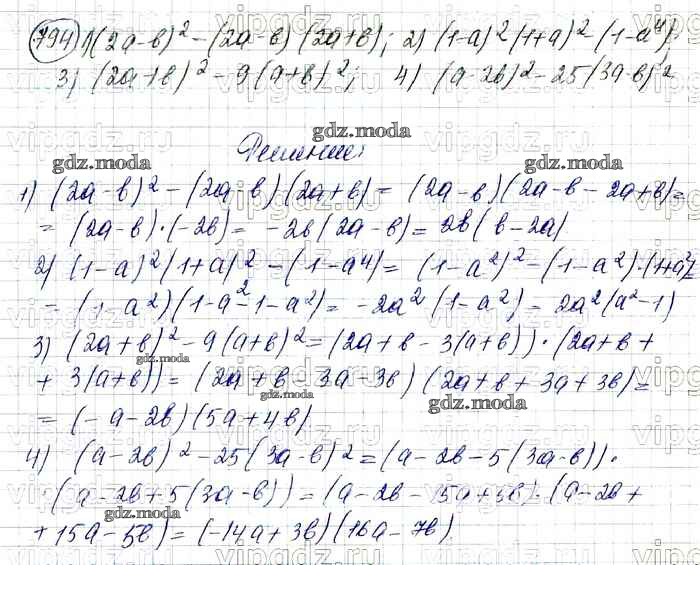 794 1) (2a-b)² - (2a-b)(2a+b); 2) (1-a)²(1+a)² - (1-a⁴);
3) (2a+b)² - 9(a+b)²; 4) (a-2b)² - 25(3a-b)²
Решение:
gdz.moda
gdz.moda
1) (2a-b)² - (2a-b)(2a+b) = (2a-b)(2a-b-2a+b) =
= (2a-b)·(-2b) = -2b(2a-b) = 2b(b-2a)
2) (1-a)²(1+a)² - (1-a⁴) = (1-a²)² - (1-a²)·(1+a²) =
= (1-a²)(1-a²-1-a²) = -2a²(1-a²) = 2a²(a²-1)
3) (2a+b)² - 9(a+b)² = (2a+b-3(a+b))·(2a+b+
gdz.moda
+3(a+b)) = (2a+b-3a-3b)(2a+b+3a+3b) =
gdz.moda
gdz.moda
= (-a-2b)(5a+4b)
4) (a-2b)² - 25(3a-b)² = (a-2b-5(3a-b))·
(a-2b+5(3a-b)) = (a-2b-15a+5b)·(a-2b+
gdz.moda
gdz.moda
+15a-5b) = (-14a+3b)(16a-7b)
vipgdz.ru